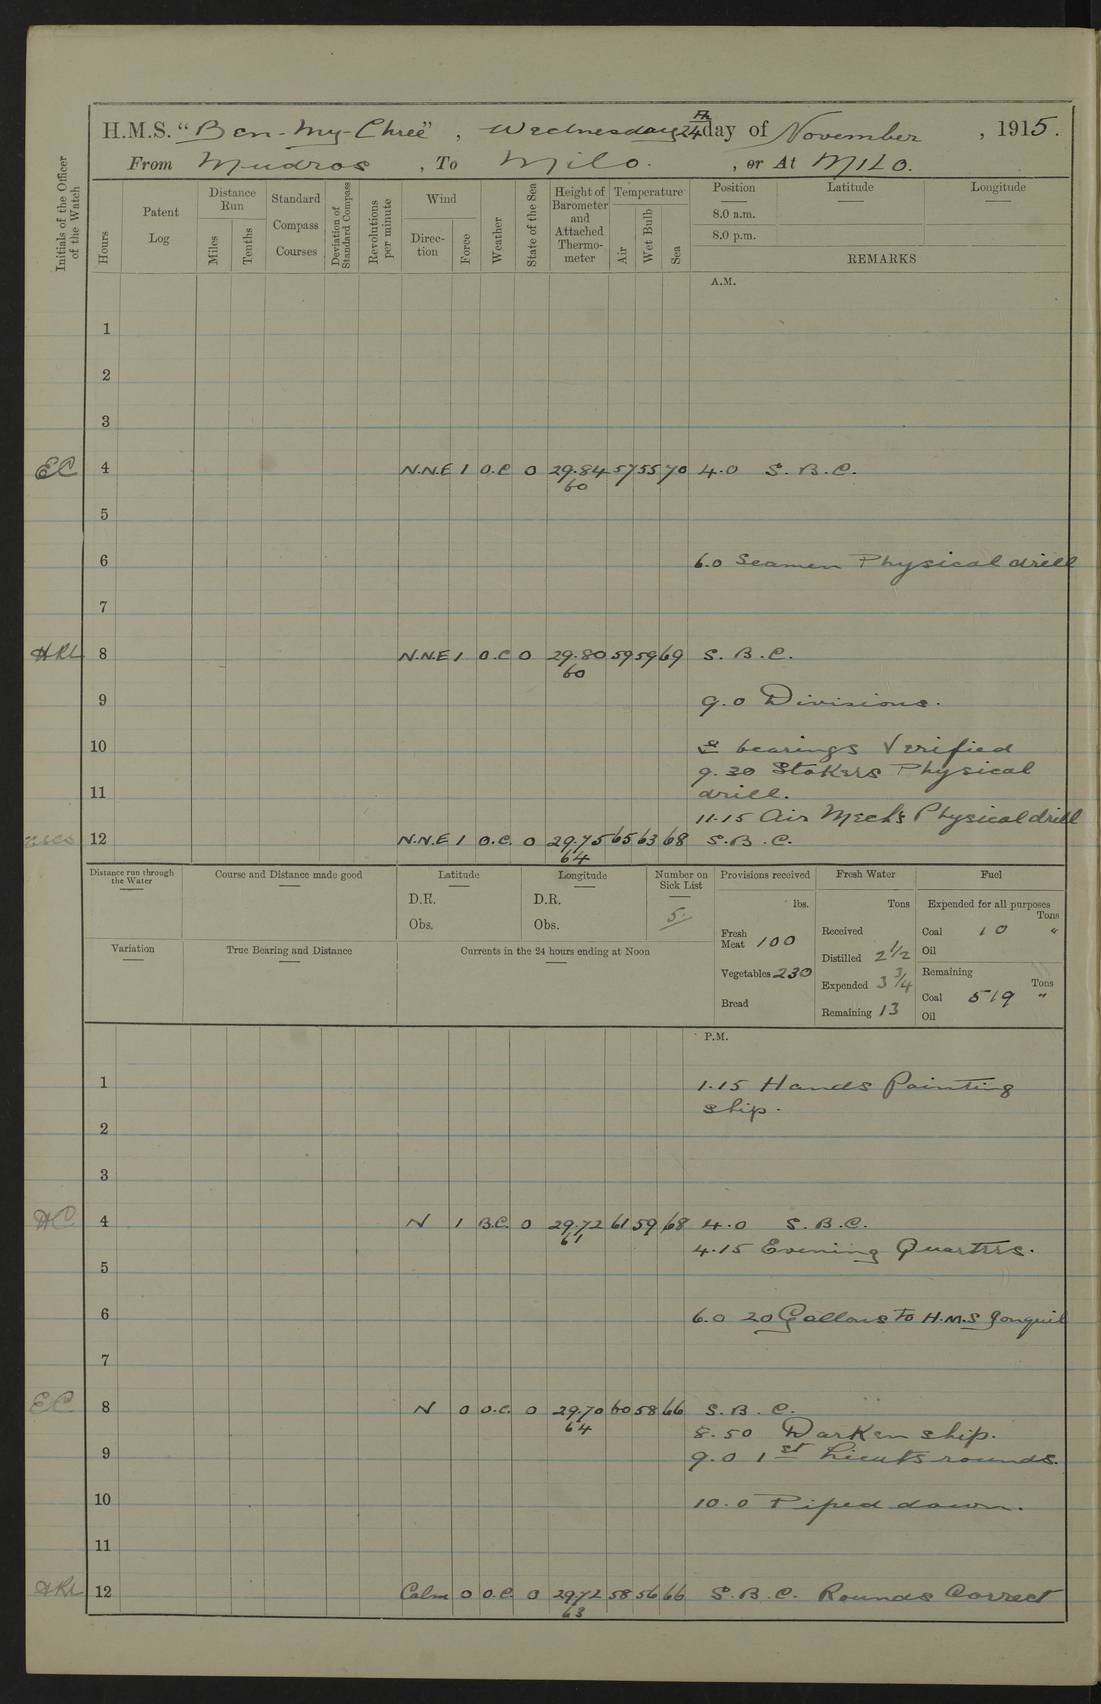 H.M.S. "Ben-my-Chree", Wednesday 24th day of November, 1915.
From Mudros, To Milo., or At MILO.
Initials of the Officer of the Watch
Hours
Patent Log
Distance Run
Miles
Tenths
Standard Compass Courses
Deviation of Standard Compass
Revolutions per minute
Wind
Direction
Force
Weather
State of the Sea
Height of Barometer and Attached Thermometer
Temperature
Air
Wet Bulb
Sea
Position
8.0 a.m.
8.0 p.m.
Latitude
Longitude
REMARKS
A.M.
1
2
3
EC 4 N.N.E 1 O.C 0 29.84 57 55 70 4.0 S.B.C.
60
5
6 6.0 Seamen Physical drill
7
HRL 8 N.N.E 1 O.C 0 29.80 59 59 69 S.B.C.
60
9 9.0 Divisions.
10 bearings Verified
9.30 Stokers Physical
11 drill.
11.15 Air Mech's Physical drill
12 N.N.E 1 O.C. 0 29.75 65 63 68 S.B.C.
64
Distance run through the Water
Course and Distance made good
Latitude
D.R.
Obs.
Longitude
D.R.
Obs.
Number on Sick List
5
Provisions received
lbs.
Fresh Meat 100
Vegetables 230
Bread
Fresh Water
Tons
Received
Distilled 2 1/2
Expended 3 3/4
Remaining 13
Fuel
Expended for all purposes
Tons
Coal 10 "
Oil
Remaining
Tons
Coal 519 "
Oil
Variation
True Bearing and Distance
Currents in the 24 hours ending at Noon
P.M.
1 1.15 Hands Painting
ship.
2
3
HC 4 N 1 B.C. 0 29.72 61 59 68 4.0 S.B.C.
61
4.15 Evening Quarters.
5
6 6.0 20 Gallons to H.M.S Jonquil
7
EC 8 N 0 O.C. 0 29.70 60 58 66 S.B.C.
64
8.50 Darken ship.
9 9.0 1st Lieuts rounds.
10 10.0 Piped down.
11
HRL 12 Calm 0 O.C. 0 29.72 58 56 66 S.B.C. Rounds Correct
63